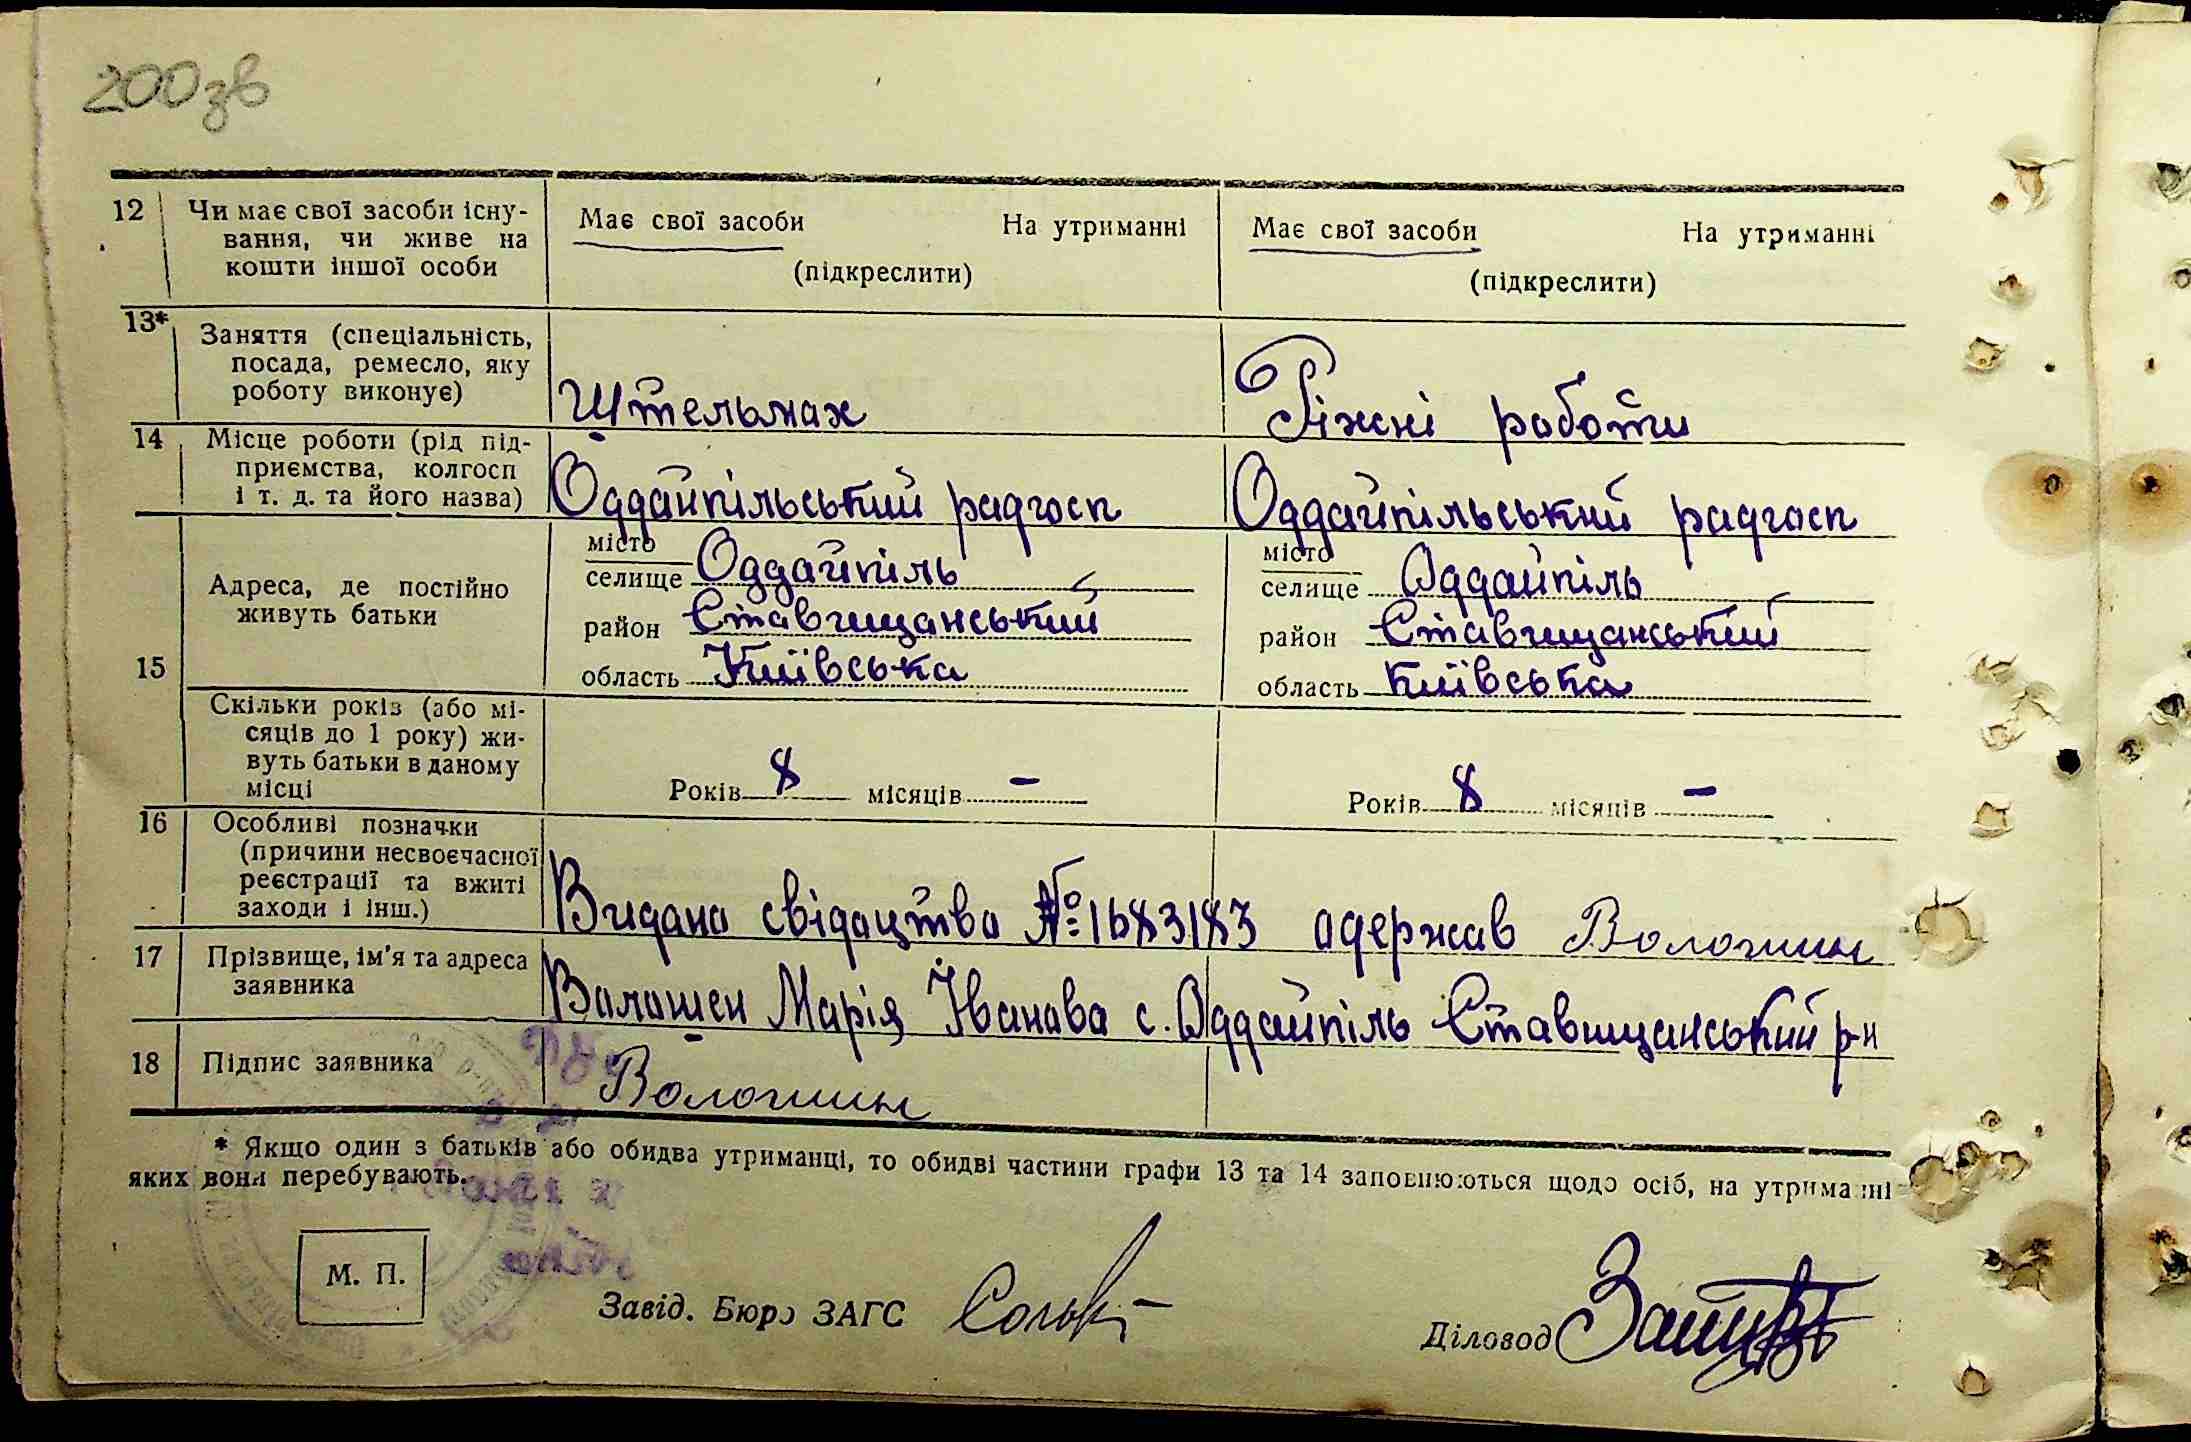 200зв
12 Чи має свої засоби існу- Має свої засоби На утриманні Має свої засоби На утриманні
вання, чи живе на
кошти іншої особи (підкреслити) (підкреслити)
13* Заняття (спеціальність,
посада, ремесло, яку
роботу виконує) Штельмах Ріжні роботи
14 Місце роботи (рід під-
приємства, колгосп
і т. д. та його назва) Оддайпільський радгосп Оддайпільський радгосп
місто місто
Адреса, де постійно селище Оддайпіль селище Оддайпіль
живуть батьки район Ставищанський район Ставищанський
15 область Київська область Київська
Скільки років (або мі-
сяців до 1 року) жи-
вуть батьки в даному
місці Років 8 місяців - Років 8 місяців -
16 Особливі позначки
(причини несвоєчасної
реєстрації та вжиті
заходи і інш.) Видано свідацтво № 1683183 одержав Волошин
17 Прізвище, ім'я та адреса
заявника Волошен Марія Іванова с. Оддайпіль Ставищанський р-н
18 Підпис заявника Волошин
* Якщо один з батьків або обидва утриманці, то обидві частини графи 13 та 14 заповнюються щодо осіб, на утриманні
яких вони перебувають.
М. П.
Завід. Бюро ЗАГС
Діловод